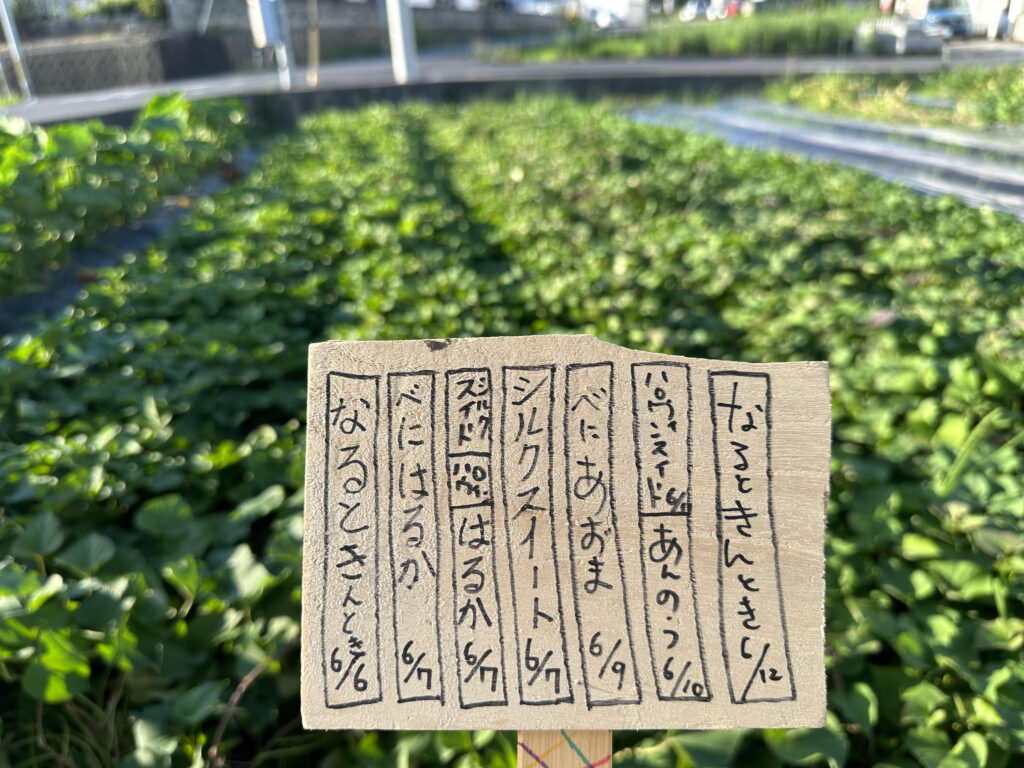 なるときんとき 6/12
ハロウィンスイート
あんのう 6/10
べにあずま 6/9
シルクスイート 6/7
シルクスイート
はるか 6/7
べにはるか 6/7
なるときんとき 6/6